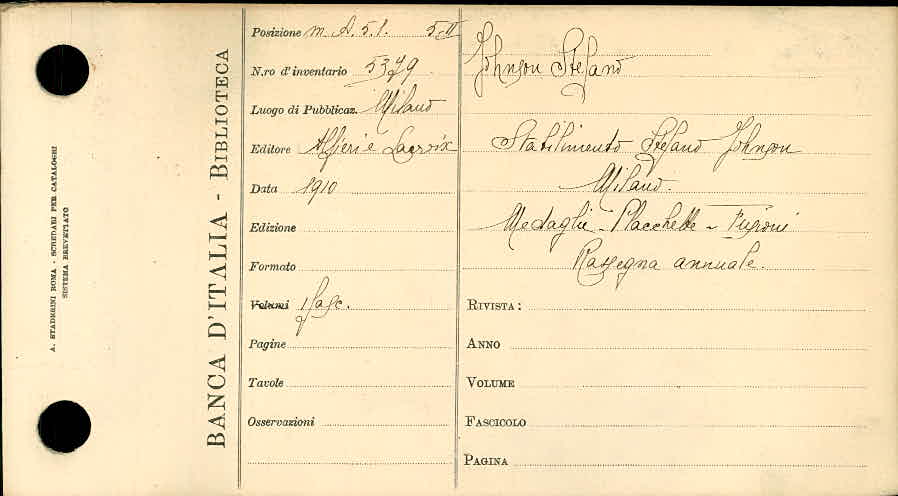 A. STADERINI ROMA - SCHEDARI PER CATALOGHI
SISTEMA BREVETTATO
BANCA D'ITALIA - BIBLIOTECA
Posizione m. A. 5. 1. 5-II
N.ro d'inventario 5379
Luogo di Pubblicaz. Milano
Editore Alfieri e Lacroix
Data 1910
Edizione
Formato
Volumi 1 fasc.
Pagine
Tavole
Osservazioni
Johnson Stefano
Stabilimento Stefano Johnson
Milano.
Medaglie - Placchette - Fusioni
Rassegna annuale.
RIVISTA:
ANNO
VOLUME
FASCICOLO
PAGINA